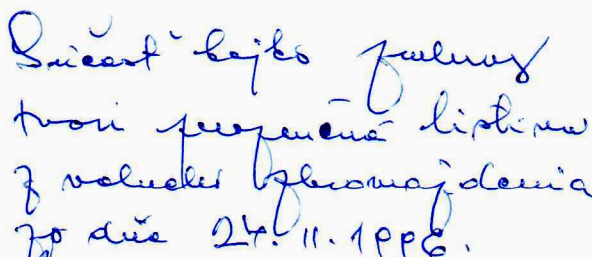 Súčasť tejto zmluvy
tvorí prezenčná listina
z valného zhromaždenia
zo dňa 24. 11. 1996.